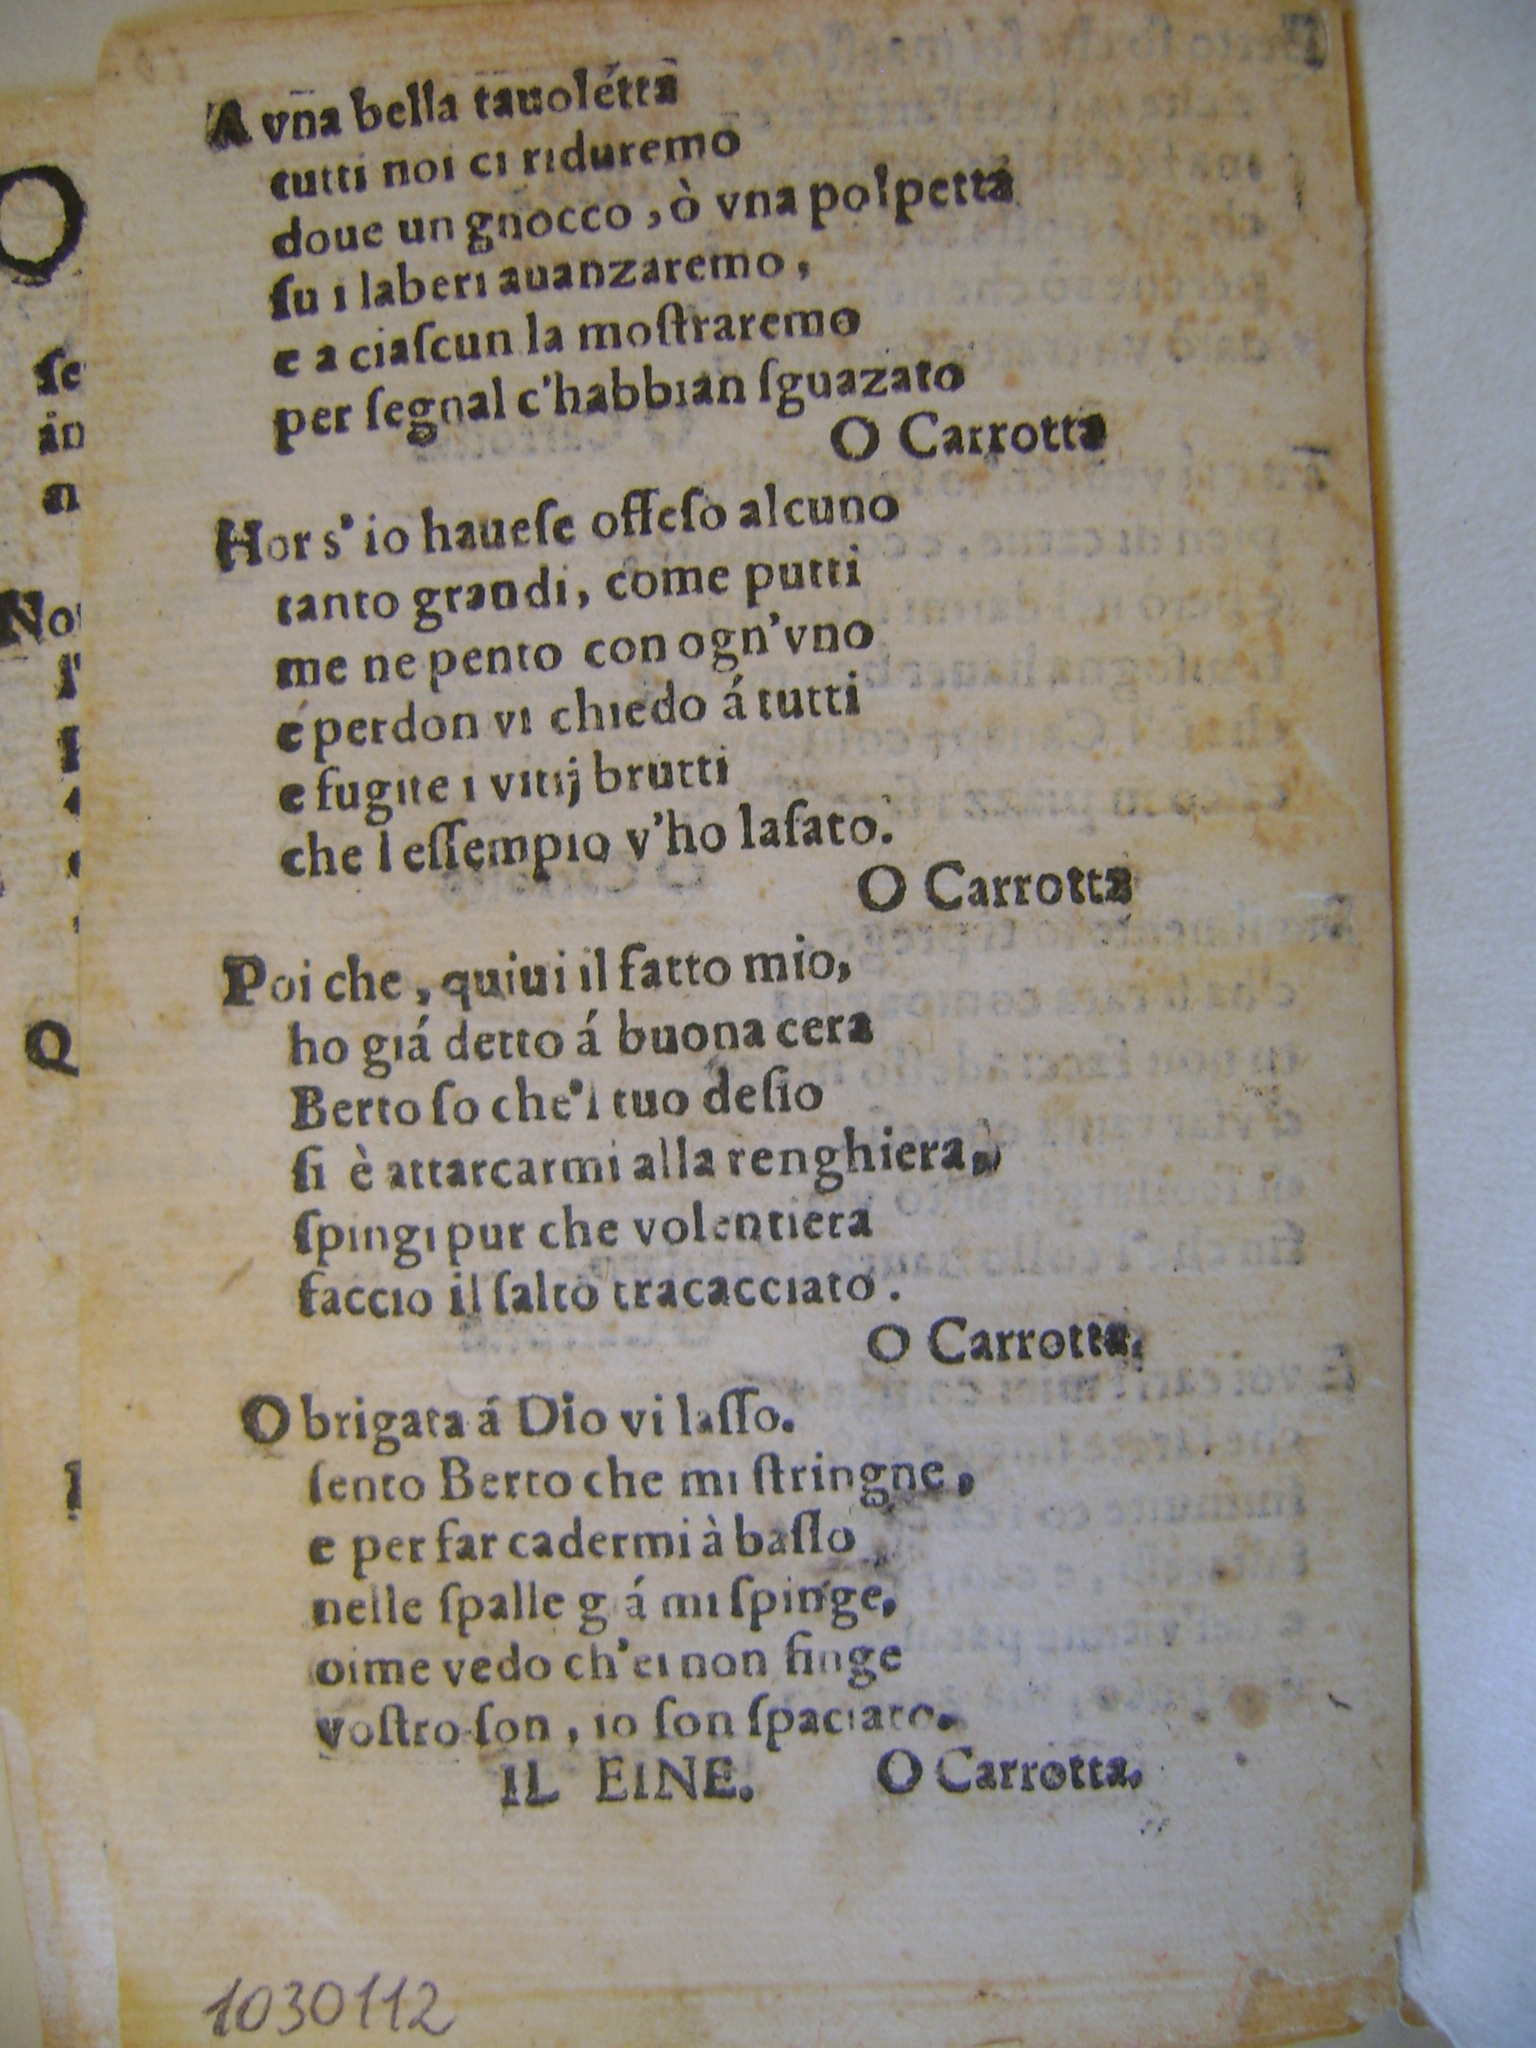 A vna bella tauoletta
tutti noi ci riduremo
doue un gnocco, ò vna polpetta
ſu i laberi auanzaremo,
e a ciaſcun la moſtraremo
per ſegnal c'habbian ſguazato
O Carrotta
Hor s' io haueſe offeſo alcuno
tanto grandi, come putti
me ne pento con ogn'vno
e perdon vi chiedo á tutti
e fugite i vitij brutti
che l eſſempio v'ho laſato.
O Carrotta
Poi che, quiui il fatto mio,
ho giá detto á buona cera
Berto ſo che'l tuo deſio
ſi è attarcarmi alla renghiera,
ſpingi pur che volentiera
faccio il ſalto tracacciato.
O Carrotta.
O brigata á Dio vi laſſo.
ſento Berto che mi ſtringne,
e per far cadermi à baſſo
nelle ſpalle g á mi ſpinge,
oime vedo ch'ei non finge
voſtro ſon, io ſon ſpaciato.
IL EINE. O Carrotta.
1030112
ſe
in
Q